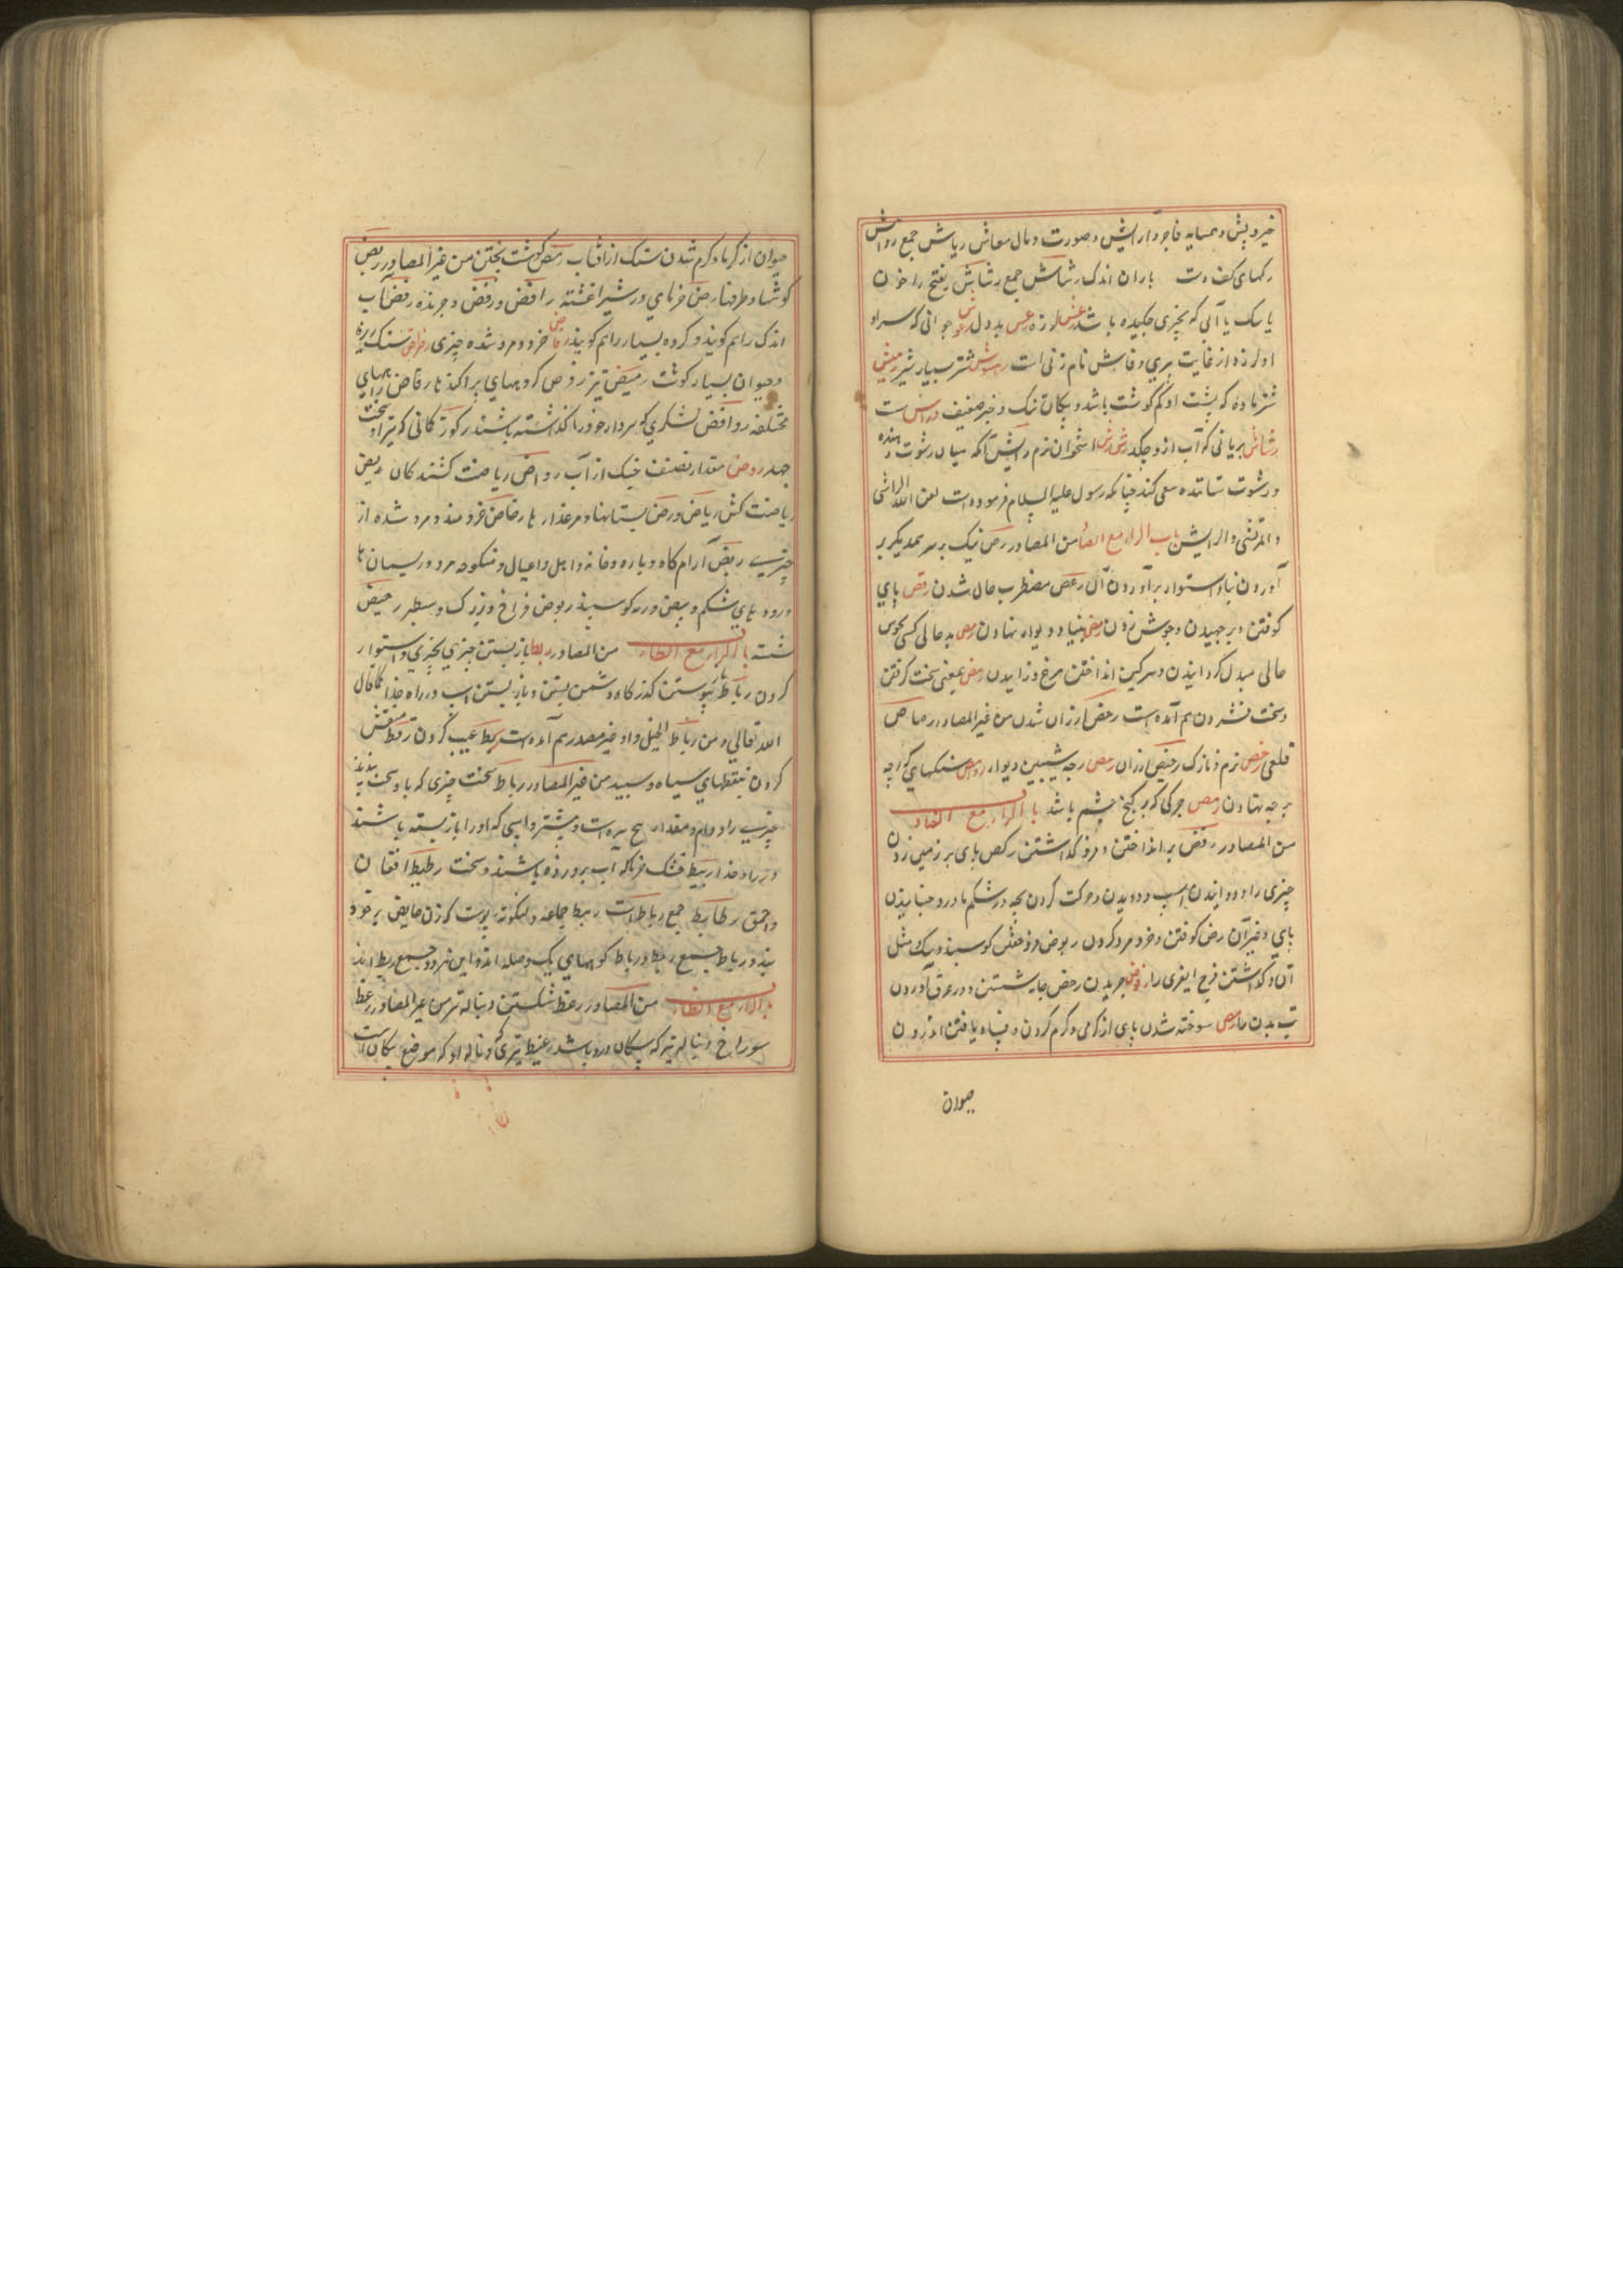 خیر و پش و همسایه فاجر و ارایش و صورت و مال معاش ریاش جمع رواش
رکهای کف دست باران اندک رشاش جمع رشاش بفتح را خون
یا سک یا آبی که بچیزی چکیده باشد رعش لرزه رعس بددل جوانی که سر او
او لرزه از غایت پیری و فاحش نام زنی است شتر بسیار شیر
شتر ماده که پشت او کم کوشت باشد و پیکان تنک و خبر ضعیف
رشاش بریانی که آب ازو چکد استخوان نرم رایش آنکه میان رشوت دهنده
و رشوت ستاننده سعی کند چنانکه رسول علیه السلام فرموده است لعن الله الراشی
و المرتشی و الرایش باب الراء مع الصاد من المصادر رص نیک بر سر همدیکر بر
آوردن بنا و استوار برآوردن آن رعص مضطرب حال شدن رقص پای
کوفتن و برجهیدن و جوش زدن رهص بنیاد دیوار نهادن بد حالی کسی بخوش
حالی مبدل کردانیدن و سرکین انداختن مرغ و زاییدن رهص بمعنی سخت کرفتن
و سخت فشردن هم آمده است رخص ارزان شدن من غیر المصادر رصاص
قلعی رخص نرم و نازک رخیص ارزان رهص رجه شیبین دیوار رواهص سنکهای که رجه
بر جه نهادن رمص چرکی که بر کنج چشم باشد باب الراء مع الضاد
من المصادر رفض برانداختن و فرو کذاشتن رکض پای بر زمین زدن
چیزی را و دوانیدن اسب و دویدن و حرکت کردن بچه در شکم مادر و جنبانیدن
پای و غیر آن رض کوفتن و خرد مرد کردن ربوض و خفتن کوسبند و سک مثل
آن و کذاشتن فرج چریدن رحض جامه شستن و در عرق آوردن
تب بدن را رمض سوخته شدن پای از کرمی و کرم کردن و پناه یافتن اندرون
حیوان
حیوان از کرما و کرم شدن سنک از افتاب رمض کوشت پختن من غیر المصادر ربض
کوشها و طرفها رض خرمای در شیر اغشته رافض و رفض و چرنده رفض آب
اندک را هم کویند و کروه بسیار را هم کویند خرد و مرد شده چیزی رضراض سنک ریزه
و حیوان بسیار کوشت رمیض تیز رفض کروههای پراکنده ارفاض راههای
مختلفه روافض لشکری که سردار خود را کذاشته باشند رکوض کمانی که تیر او سخت
جهد روض مقدار نصف خیک از آب رواض ریاضت کشندکان ریض
ریاضت کش ریاض و روض بستانها و مرغزارها رضاض خرد مرد شده از
چیزی ربض آرام کاه و باره و خانه و اهل و عیال و منکوحه مرد و ریسمان ها
و روده های شکم و ربیض و رمه کوسبند ربوض فراخ و بزرک و سطبر رحیض
شسته باب الراء مع الطاء من المصادر ربط باز بستن چیزی بچیزی و استوار
کردن رباط پیوستن کذرکاه دشمن بستن و باز بستن اسب در راه خدا کما قال
الله تعالی و من رباط الخیل و او غیر مصدر هم آمده است ربط عیب کردن رقط منقش
کردن بنقطهای سیاه و سبید من غیر المصادر رباط سخت چیزی که باو سخت بندند
چیزی را و دام و مقدار پنج سر است و بیشتر و اسبی که او را باز بسته باشند
در راه خدا ربیط خشک خرما که آب برو زده باشند و سخت رطیط افغان
و احمق رطایط جمع رباط است رهط جماعه و لنکوته پوست که زن حایض بر خود
بندد رباط جمع رهط و رباط کوههای یک وصله اند و این هر دو جمع ربط اند
باب الراء مع الظاء من المصادر رعظ شکستن دنباله تیر من غیر المصادر رعظ
سوراخ دنباله تیر که پیکان درو باشد رعیظ تیری که دنباله او که موضع پیکان است